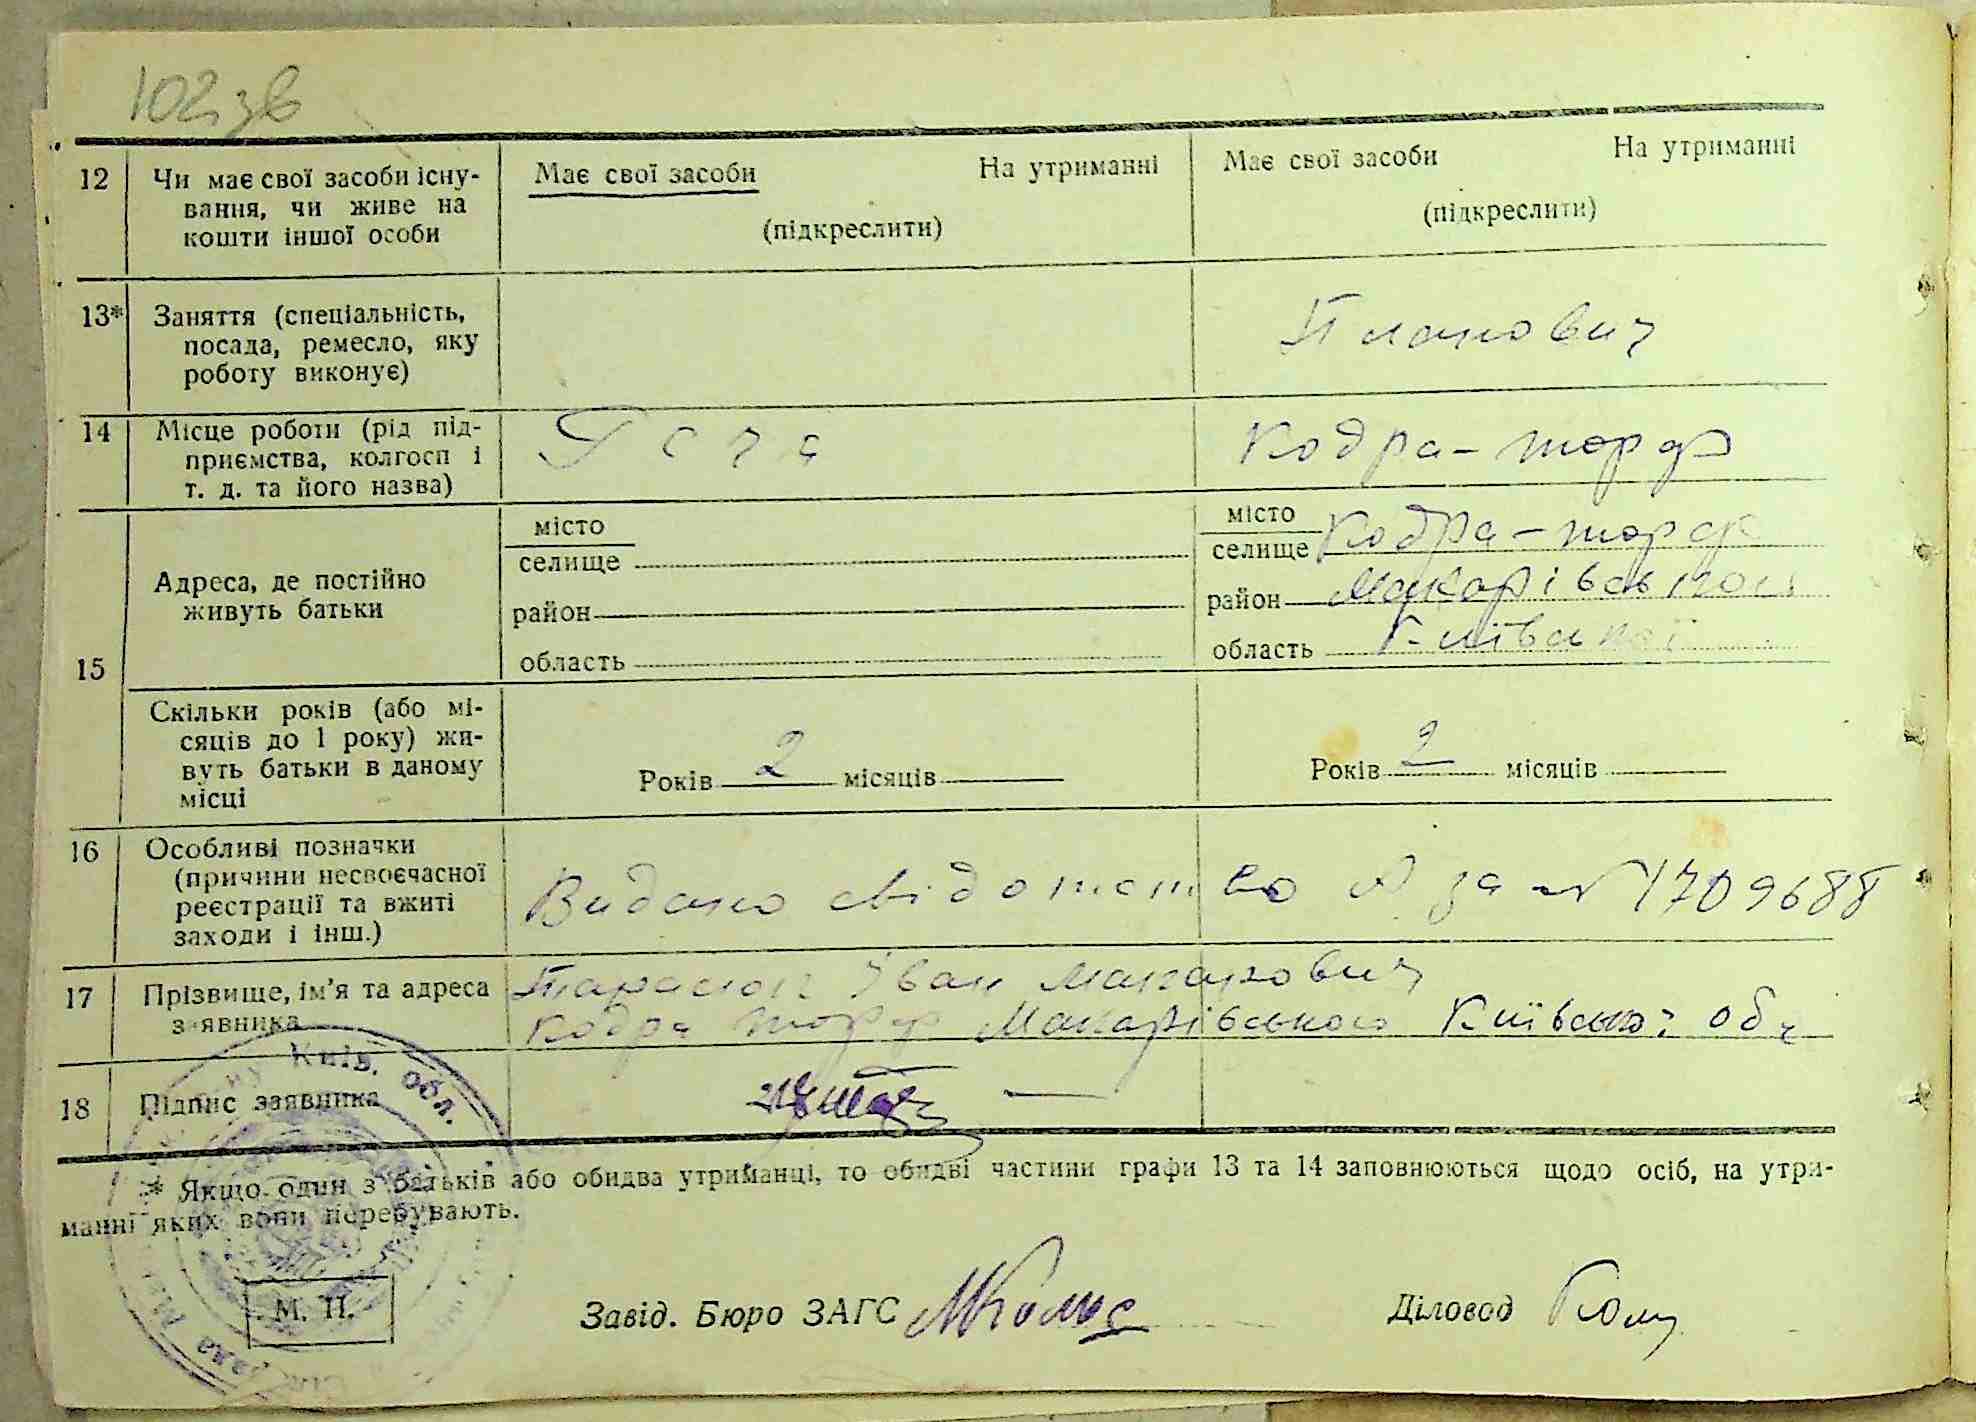 102зв
12 Чи має свої засоби існу- Має свої засоби На утриманні Має свої засоби На утриманні
вання, чи живе на (підкреслити) (підкреслити)
кошти іншої особи
13* Заняття (спеціальність, Планович
посада, ремесло, яку
роботу виконує)
14 Місце роботи (рід під- Кодра-торф
приємства, колгосп і
т. д. та його назва)
15 Адреса, де постійно живуть батьки
місто місто
селище селище Кодра-торф
район район Макарівський
область область Київської
Скільки років (або мі-
сяців до 1 року) жи-
вуть батьки в даному Років 2 місяців Років 2 місяців
місці
16 Особливі позначки
(причини несвоєчасної Видано свідотство А за № 1709688
реєстрації та вжиті
заходи і інш.)
17 Прізвище, ім'я та адреса Тарасюк Іван Макарович
заявника Кодра торф Макарівського Київської обл
18 Підпис заявника
* Якщо один з батьків або обидва утриманці, то обидві частини графи 13 та 14 заповнюються щодо осіб, на утри-
манні яких вони перебувають.
Київ. обл.
М. П. Завід. Бюро ЗАГС Діловод